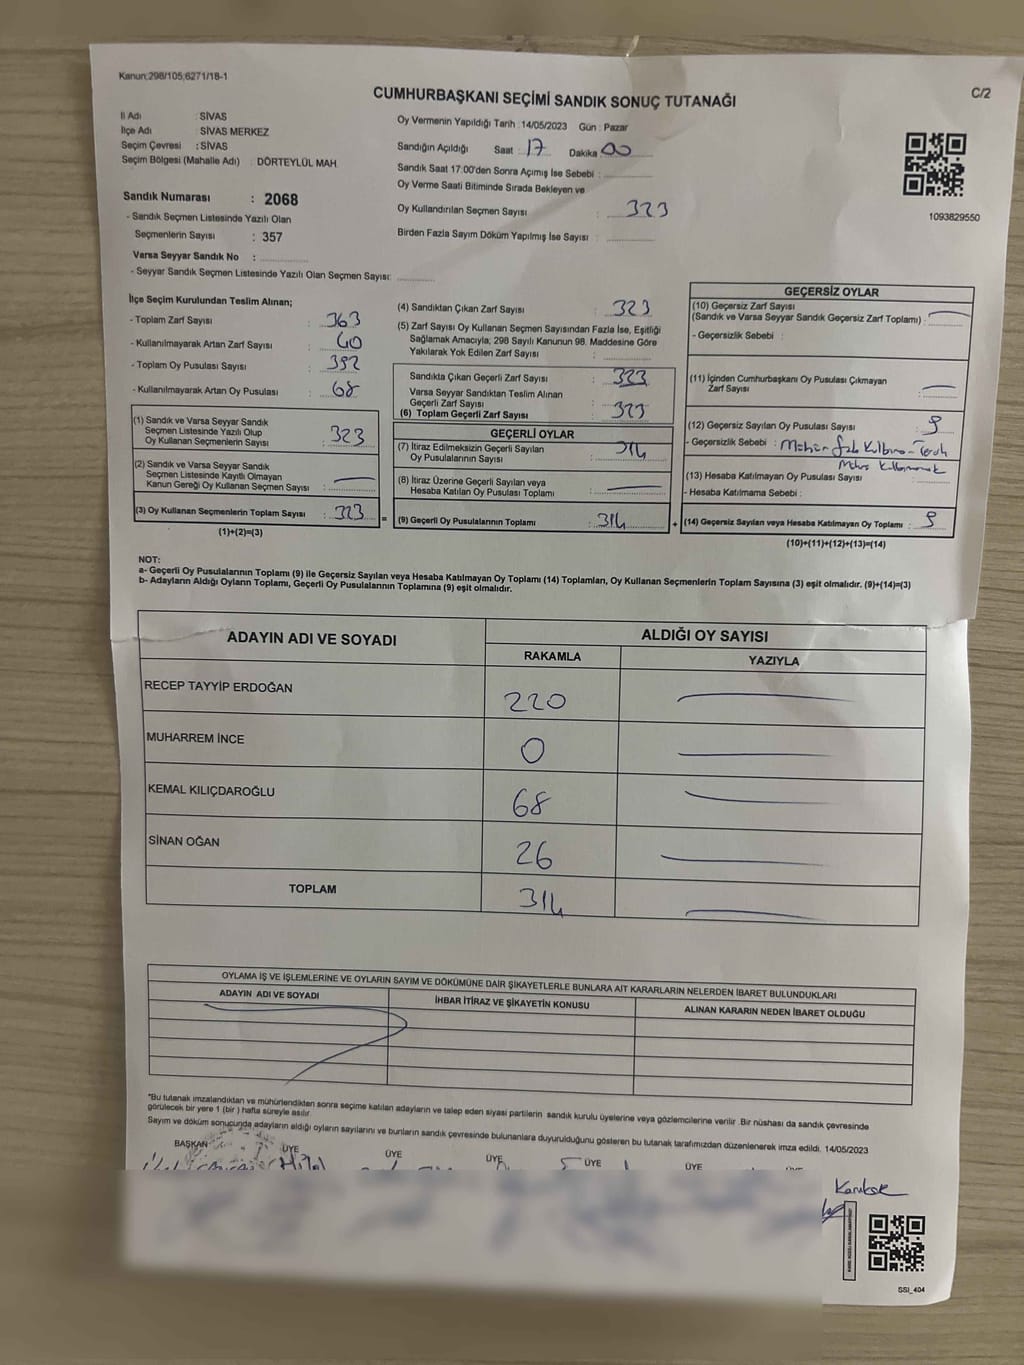 Kanun:298/105;6271/18-1
C/2
CUMHURBAŞKANI SEÇİMİ SANDIK SONUÇ TUTANAĞI
İl Adı : SİVAS
İlçe Adı : SİVAS MERKEZ
Seçim Çevresi : SİVAS
Seçim Bölgesi (Mahalle Adı) : DÖRTEYLÜL MAH.
Sandık Numarası : 2068
- Sandık Seçmen Listesinde Yazılı Olan
Seçmenlerin Sayısı : 357
Varsa Seyyar Sandık No :
- Seyyar Sandık Seçmen Listesinde Yazılı Olan Seçmen Sayısı:
Oy Vermenin Yapıldığı Tarih :14/05/2023 Gün : Pazar
Sandığın Açıldığı Saat : 17 Dakika 00
Sandık Saat 17:00'den Sonra Açımış İse Sebebi :
Oy Verme Saati Bitiminde Sırada Bekleyen ve
Oy Kullandırılan Seçmen Sayısı : 323
Birden Fazla Sayım Döküm Yapılmış İse Sayısı :
1093829550
İlçe Seçim Kurulundan Teslim Alınan;
- Toplam Zarf Sayısı : 363
- Kullanılmayarak Artan Zarf Sayısı : 40
- Toplam Oy Pusulası Sayısı : 392
- Kullanılmayarak Artan Oy Pusulası : 68
(1) Sandık ve Varsa Seyyar Sandık
Seçmen Listesinde Yazılı Olup
Oy Kullanan Seçmenlerin Sayısı : 323
(2) Sandık ve Varsa Seyyar Sandık
Seçmen Listesinde Kayıtlı Olmayan
Kanun Gereği Oy Kullanan Seçmen Sayısı :
(3) Oy Kullanan Seçmenlerin Toplam Sayısı : 323 =
(1)+(2)=(3)
(4) Sandıktan Çıkan Zarf Sayısı : 323
(5) Zarf Sayısı Oy Kullanan Seçmen Sayısından Fazla İse, Eşitliği
Sağlamak Amacıyla; 298 Sayılı Kanunun 98. Maddesine Göre
Yakılarak Yok Edilen Zarf Sayısı :
Sandıkta Çıkan Geçerli Zarf Sayısı : 323
Varsa Seyyar Sandıktan Teslim Alınan
Geçerli Zarf Sayısı :
(6) Toplam Geçerli Zarf Sayısı : 323
GEÇERLİ OYLAR
(7) İtiraz Edilmeksizin Geçerli Sayılan
Oy Pusulalarının Sayısı : 314
(8) İtiraz Üzerine Geçerli Sayılan veya
Hesaba Katılan Oy Pusulası Toplamı :
(9) Geçerli Oy Pusulalarının Toplamı : 314 +
GEÇERSİZ OYLAR
(10) Geçersiz Zarf Sayısı
(Sandık ve Varsa Seyyar Sandık Geçersiz Zarf Toplamı) :
- Geçersizlik Sebebi :
(11) İçinden Cumhurbaşkanı Oy Pusulası Çıkmayan
Zarf Sayısı :
(12) Geçersiz Sayılan Oy Pusulası Sayısı : 9
- Geçersizlik Sebebi :
(13) Hesaba Katılmayan Oy Pusulası Sayısı :
- Hesaba Katılmama Sebebi :
(14) Geçersiz Sayılan veya Hesaba Katılmayan Oy Toplamı : 9
(10)+(11)+(12)+(13)=(14)
NOT:
a- Geçerli Oy Pusulalarının Toplamı (9) ile Geçersiz Sayılan veya Hesaba Katılmayan Oy Toplamı (14) Toplamları, Oy Kullanan Seçmenlerin Toplam Sayısına (3) eşit olmalıdır. (9)+(14)=(3)
b- Adayların Aldığı Oyların Toplamı, Geçerli Oy Pusulalarının Toplamına (9) eşit olmalıdır.
ADAYIN ADI VE SOYADI ALDIĞI OY SAYISI
RAKAMLA YAZIYLA
RECEP TAYYİP ERDOĞAN 220
MUHARREM İNCE 0
KEMAL KILIÇDAROĞLU 68
SİNAN OĞAN 26
TOPLAM 314
OYLAMA İŞ VE İŞLEMLERİNE VE OYLARIN SAYIM VE DÖKÜMÜNE DAİR ŞİKAYETLERLE BUNLARA AİT KARARLARIN NELERDEN İBARET BULUNDUKLARI
ADAYIN ADI VE SOYADI İHBAR İTİRAZ VE ŞİKAYETİN KONUSU ALINAN KARARIN NEDEN İBARET OLDUĞU
"Bu tutanak imzalandıktan ve mühürlendikten sonra seçime katılan adayların ve talep eden siyasi partilerin sandık kurulu üyelerine veya gözlemcilerine verilir .Bir nüshası da sandık çevresinde
görülecek bir yere 1 (bir ) hafta süreyle asılır.
Sayım ve döküm sonucunda adayların aldığı oyların sayılarını ve bunların sandık çevresinde bulunanlara duyurulduğunu gösteren bu tutanak tarafımızdan düzenlenerek imza edildi. 14/05/2023
BAŞKAN ÜYE ÜYE ÜYE ÜYE ÜYE
SSI_404